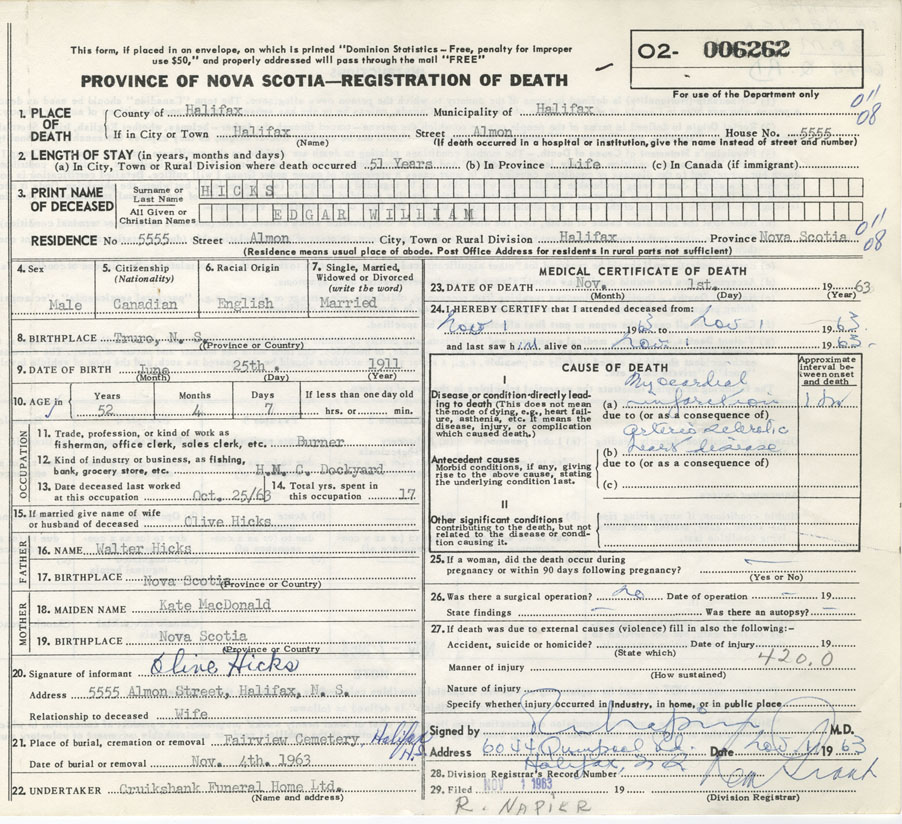 This form, if placed in an envelope, on which is printed "Dominion Statistics – Free, penalty for improper
use $50," and properly addressed will pass through the mail "FREE"
PROVINCE OF NOVA SCOTIA—REGISTRATION OF DEATH
O2- 006262
For use of the Department only
011
08
1. PLACE OF DEATH
County of Halifax Municipality of Halifax
If in City or Town Halifax Street Almon House No. 5555
(Name) (If death occurred in a hospital or institution, give the name instead of street and number)
2. LENGTH OF STAY (in years, months and days)
(a) In City, Town or Rural Division where death occurred 51 Years (b) In Province Life (c) In Canada (if immigrant)
3. PRINT NAME OF DECEASED
Surname or Last Name HICKS
All Given or Christian Names EDGAR WILLIAM
RESIDENCE No 5555 Street Almon City, Town or Rural Division Halifax Province Nova Scotia
011
08
(Residence means usual place of abode. Post Office Address for residents in rural parts not sufficient)
4. Sex
Male
5. Citizenship (Nationality)
Canadian
6. Racial Origin
English
7. Single, Married, Widowed or Divorced (write the word)
Married
8. BIRTHPLACE Truro, N. S.
(Province or Country)
9. DATE OF BIRTH June 25th. 1911
(Month) (Day) (Year)
10. AGE in Years 52 Months 4 Days 7 If less than one day old hrs. or min.
OCCUPATION
11. Trade, profession, or kind of work as
fisherman, office clerk, sales clerk, etc. Burner
12. Kind of industry or business, as fishing,
bank, grocery store, etc. H.M. C. Dockyard
13. Date deceased last worked
at this occupation Oct. 25/63
14. Total yrs. spent in
this occupation 17
15. If married give name of wife
or husband of deceased Clive Hicks
FATHER
16. NAME Walter Hicks
17. BIRTHPLACE Nova Scotia
(Province or Country)
MOTHER
18. MAIDEN NAME Kate MacDonald
19. BIRTHPLACE Nova Scotia
(Province or Country)
20. Signature of informant Olive Hicks
Address 5555 Almon Street, Halifax, N. S.
Relationship to deceased Wife
21. Place of burial, cremation or removal Fairview Cemetery, Halifax N.S.
Date of burial or removal Nov. 4th. 1963
22. UNDERTAKER Cruikshank Funeral Home Ltd.
(Name and address)
MEDICAL CERTIFICATE OF DEATH
23. DATE OF DEATH Nov. 1st. 19 63
(Month) (Day) (Year)
24. I HEREBY CERTIFY that I attended deceased from:
Nov 1 1963 to Nov 1 1963
and last saw him alive on Nov 1 1963.
CAUSE OF DEATH
Approximate interval between onset and death
I
Disease or condition directly leading to death (This does not mean
the mode of dying, e.g., heart failure, asthenia, etc. It means the
disease, injury, or complication
which caused death.)
Myocardial
(a) infarction
due to (or as a consequence of)
Antecedent causes
Morbid conditions, if any, giving
rise to the above cause, stating
the underlying condition last.
arteriosclerotic
(b) heart disease
due to (or as a consequence of)
(c)
II
Other significant conditions
contributing to the death, but not
related to the disease or condition causing it.
25. If a woman, did the death occur during
pregnancy or within 90 days following pregnancy? —
(Yes or No)
26. Was there a surgical operation? no Date of operation – 19
State findings – Was there an autopsy? –
27. If death was due to external causes (violence) fill in also the following:–
Accident, suicide or homicide? Date of injury 19
(State which)
420.0
Manner of injury
(How sustained)
Nature of injury
Specify whether injury occurred in industry, in home, or in public place
Signed by M.D.
Address 6044 Rd. Date Nov. 1 19 63
Halifax, N.S.
28. Division Registrar's Record Number
29. Filed NOV 1 1963 19
(Division Registrar)
R. NAPIER